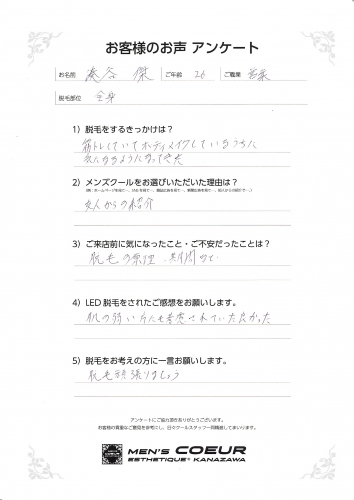 お客様のお声 アンケート
お名前 湊谷 傑 ご年齢 26 ご職業 営業
脱毛部位 全身
1）脱毛をするきっかけは？
筋トレしていてボディメイクしているうちに
気になるようになってきた
2）メンズクールをお選びいただいた理由は？
友人からの紹介
3）ご来店前に気になったこと・ご不安だったことは？
脱毛の原理、期間など
4）LED 脱毛をされたご感想をお願いします。
肌の弱い方にも考慮されていた良かった
5）脱毛をお考えの方に一言お願いします。
脱毛頑張りましょう
アンケートにご協力頂きありがとうございます。
お客様の貴重なご意見を参考にし、日々クールスタッフ一同精進してまいります。
MEN'S COEUR
ESTHETIQUE KANAZAWA